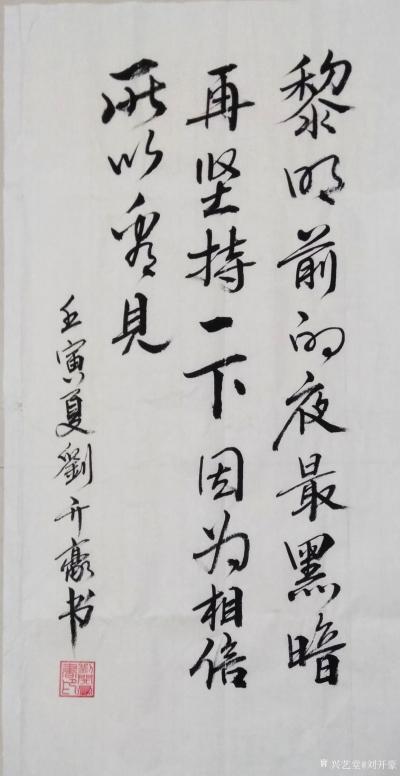 黎明前的夜最黑暗
再坚持一下因为相信
所以看见
壬寅夏劉开豪书
兴艺堂@刘开豪